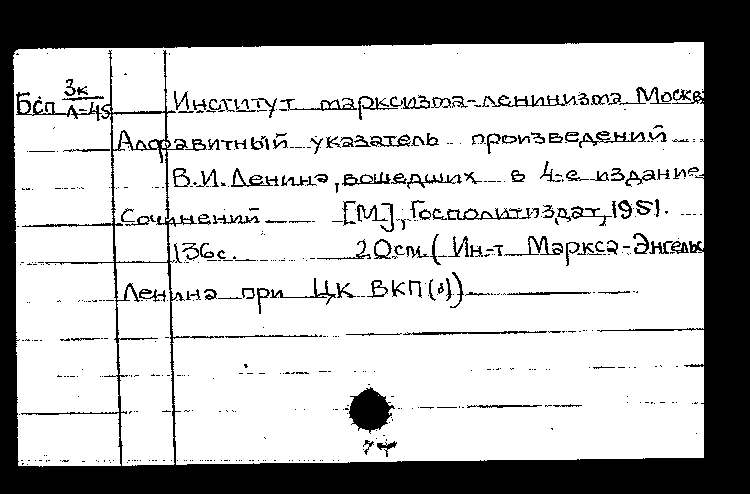 Бсп 3к
Л-45 Институт марксизма-ленинизма Москва
Алфавитный указатель произведений
В.И.Ленина, вошедших в 4-е издание
Сочинений [М], Госполитиздат, 1951.
136с. 20см. (Ин-т Маркса-Энгельс
Ленина при ЦК ВКП(б))